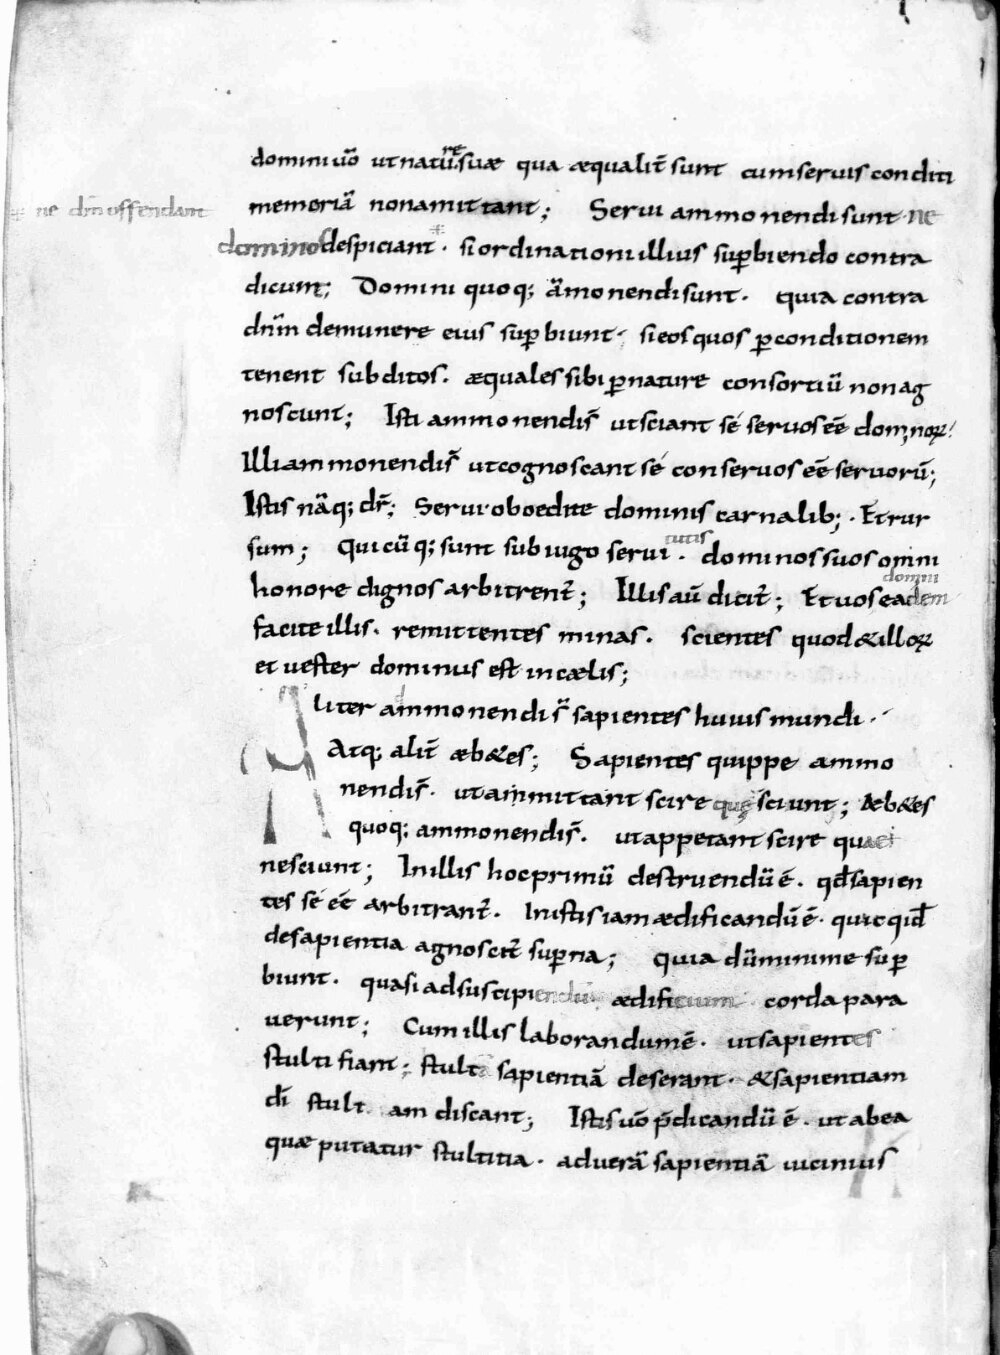 domini uō ut natūre suæ qua æqualit̄ sunt cum seruis conditi
ne dn̄m offendant
memoriā non amittant; Serui ammonendi sunt· ne
dominos despiciant· si ordinationi illius sup̱biendo contra
dicunt; Domini quoq; āmonendi sunt· quia contra
dn̄m de munere eius sup̱biunt· si eos quos p̱ conditionem
tenent subditos· æquales sibi p̱ nature consortiū non ag
noscunt; Isti ammonendis̄ ut sciant sé seruos eē dominoꝝ;
Illi ammonendis̄ ut cognoscant sé conseruos eē seruorū;
Istis nāq; dr̄; Serui· oboedite dominis carnalib;· Et rur
sum; Quicūq; sunt sub iugo serui tutis· dominos suos omni
honore dignos arbitrent̄; Illis aū dicit̄; Et uos domini eadem
facite illis· remittentes minas· scientes quod & illoꝝ
et uester dominus est in cælis;
Aliter ammonendis̄ sapientes huius mundi·
Atq; alit̄ æb&es; Sapientes quippe ammo
nendis̄· ut ammittant scire quę sciunt; Æb&es
quoq; ammonendis̄· ut appetant scire quae
nesciunt; In illis hoc primū destruendū ē· qđ sapien
tes sé eē arbitrant̄· In istis iam ædificandū ē· quicqid
de sapientia agnoscit̄ sup̱na; quia dū minime sup̱
biunt· quasi ad suscipiendū ædificium corda para
uerunt; Cum illis laborandum ē· ut sapientes
stulti fiant; stult sapientiā deserant· & sapientiam
dī stult am discant; Istis uō p̄dicandū ē· ut ab ea
quæ putatur stultitia· ad uerā sapientiā uicinius